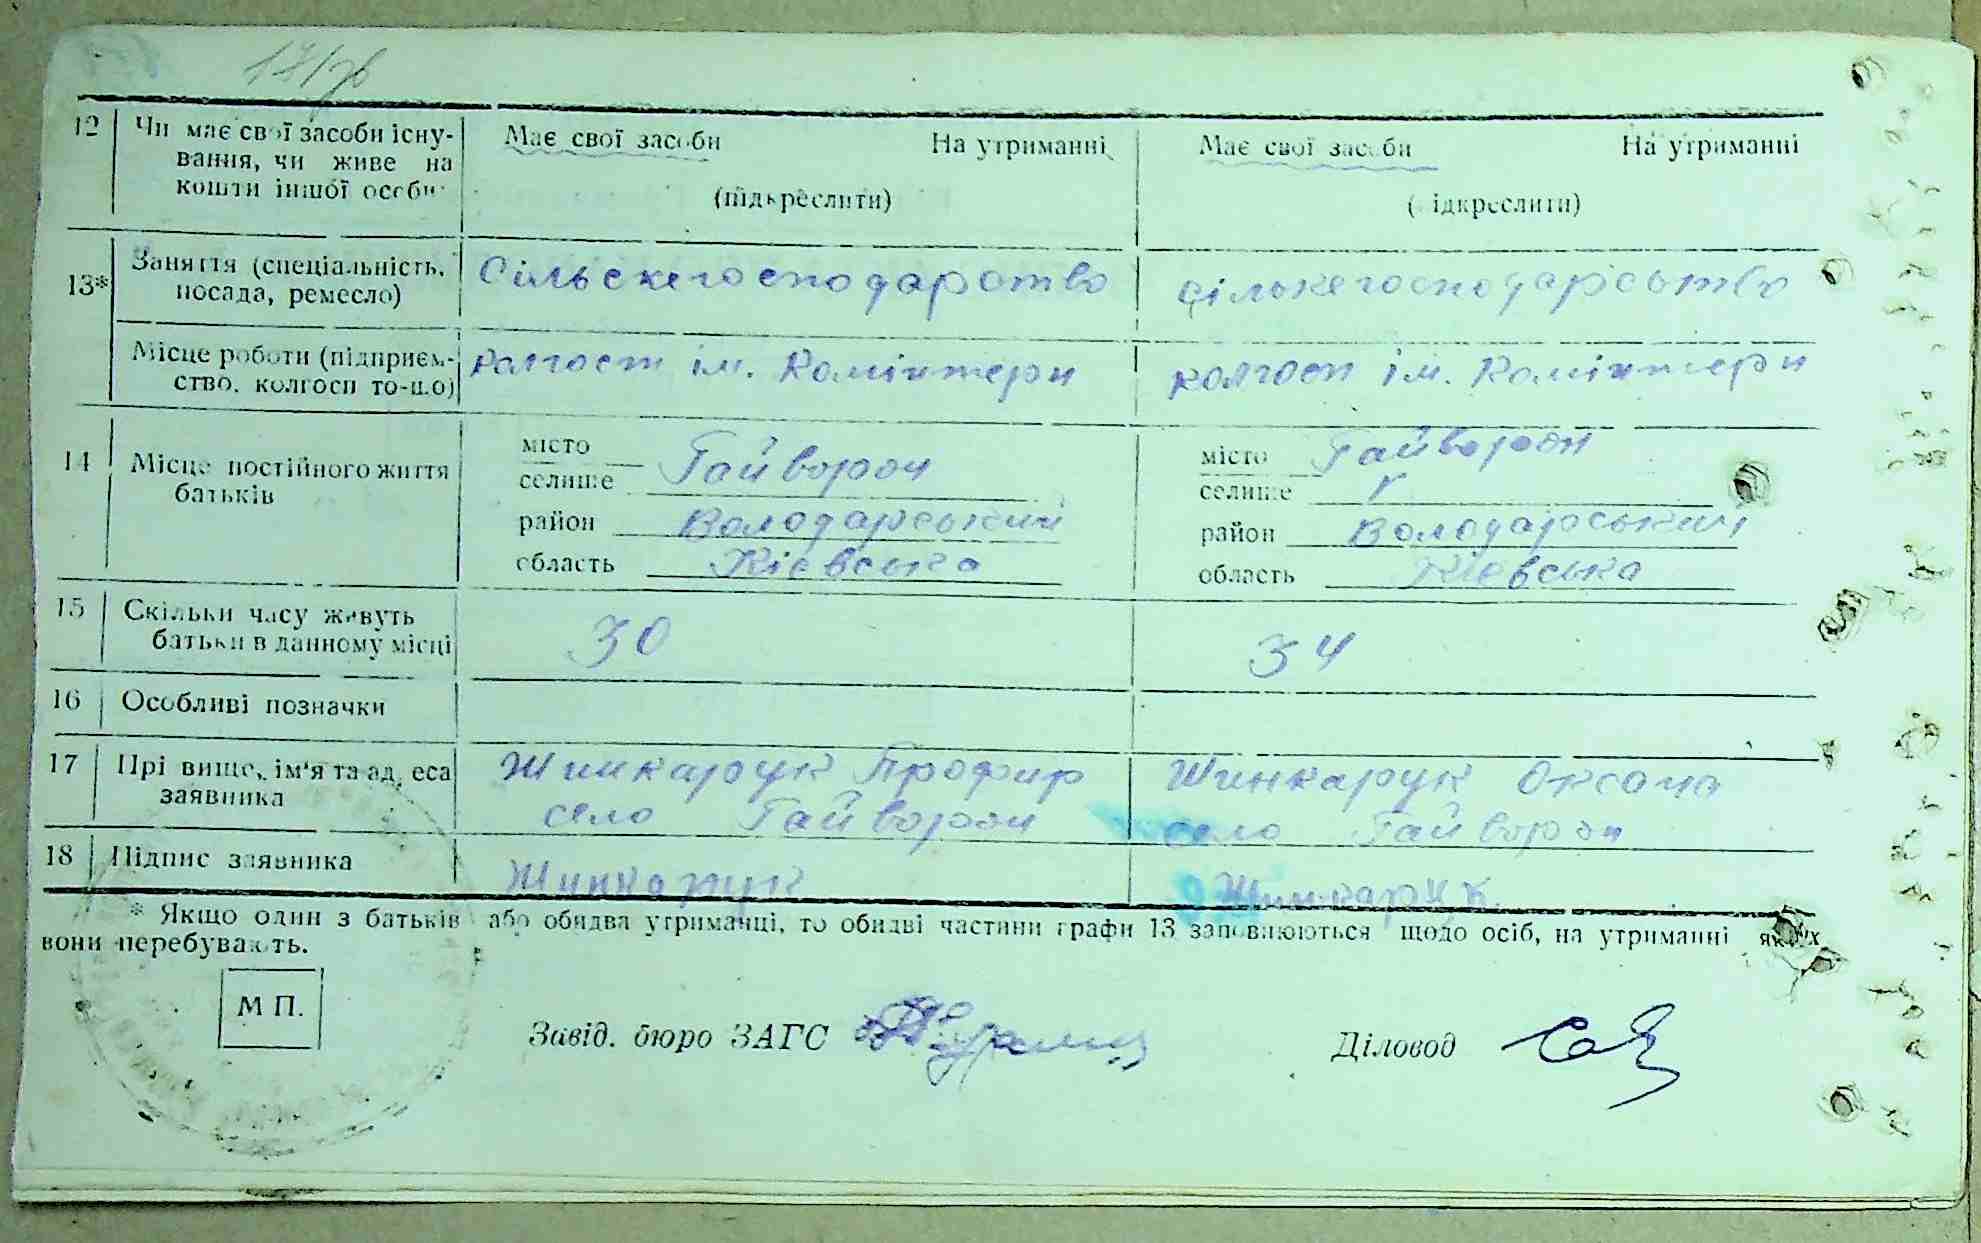 17/зв
12 Чи має свої засоби існу- Має свої засоби На утриманні Має свої засоби На утриманні
вання, чи живе на
кошти іншої особи (підкреслити) (підкреслити)
13* Заняття (спеціальність, Сільскегосподарство сількегосподарсьтво
посада, ремесло)
Місце роботи (підприєм- колгосп ім. Комінтерн колгосп ім. Комінтерн
ство, колгосп то-що)
14 Місце постійного життя місто Гайворон місто Гайворон
батьків селище селище
район Володарський район Володарський
область Кієвська область Кієвська
15 Скільки часу живуть 30 34
батьки в данному місці
16 Особливі позначки
17 Прізвище, ім'я та адреса Шинкарук Профир Шинкарук Оксана
заявника село Гайворон село Гайворон
18 Підпис заявника Шинкарук Шинкарук
* Якщо один з батьків або обидва утриманці, то обидві частини графи 13 заповнюються щодо осіб, на утриманні яких
вони перебувають.
М П.
Завід. бюро ЗАГС Діловод